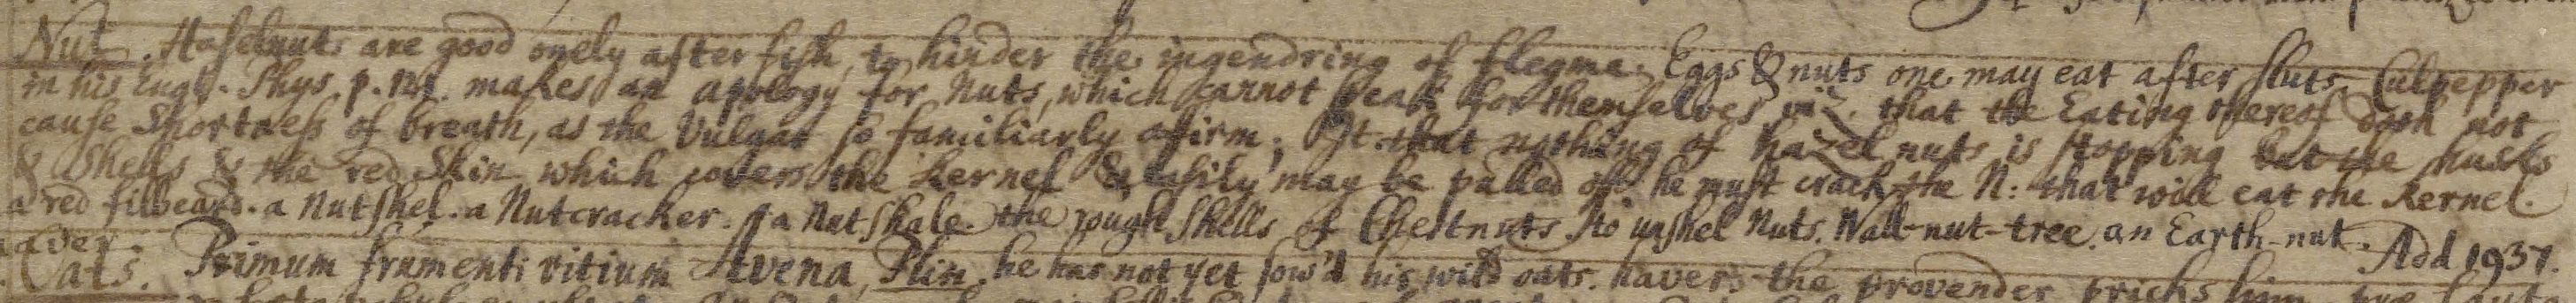 Nut. Haselnuts are good onely after fish, to hinder the ingendring of flegme. Eggs & nuts one may eat after sluts. Culpepper
in his Engl. Phys. p. makes an apology for Nuts, which cannot speak for themselves, viz. that the Eating thereof doth not
cause Shortness of breath, as the Vulgar so familiarly affirm; that nothing of hazel nuts is stopping but the husks
& Shells & the red Skin which covers the Kernel & easily may be pulled off. he must crack the N: that will eat the Kernel.
a red filbeard. a Nutshel. a Nutcracker. a Nut Shale. the rough Shells of Chestnuts. to unshel Nuts. Wall-nut-tree. an Earth-nut. Add 1937.
haver.
Oats. Primum frumenti vitium Avena, Plin. he has not yet sow'd his wild oats. havers. the provender pricks him